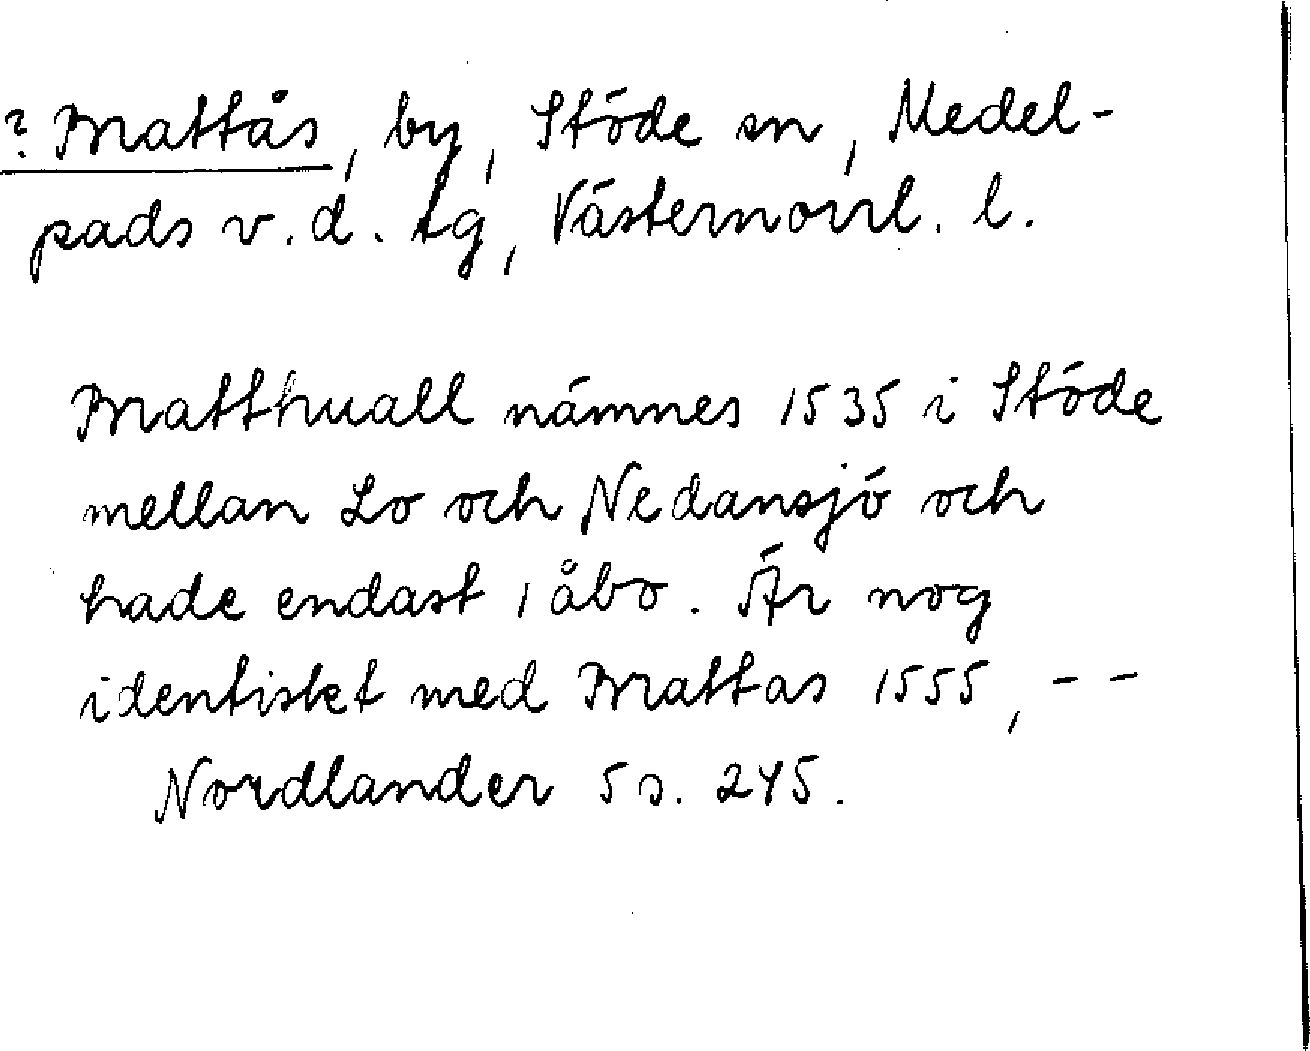 ? Brattås, by, Stöde sn, Medel-
pads v. d. tg, Västernorrl. l.
Bratthuall nämnes 1535 i Stöde
mellan Lo och Nedansjö och
hade endast 1 åbo. Är nog
identiskt med Brattas 1555, - -
Nordlander 5 s. 245.